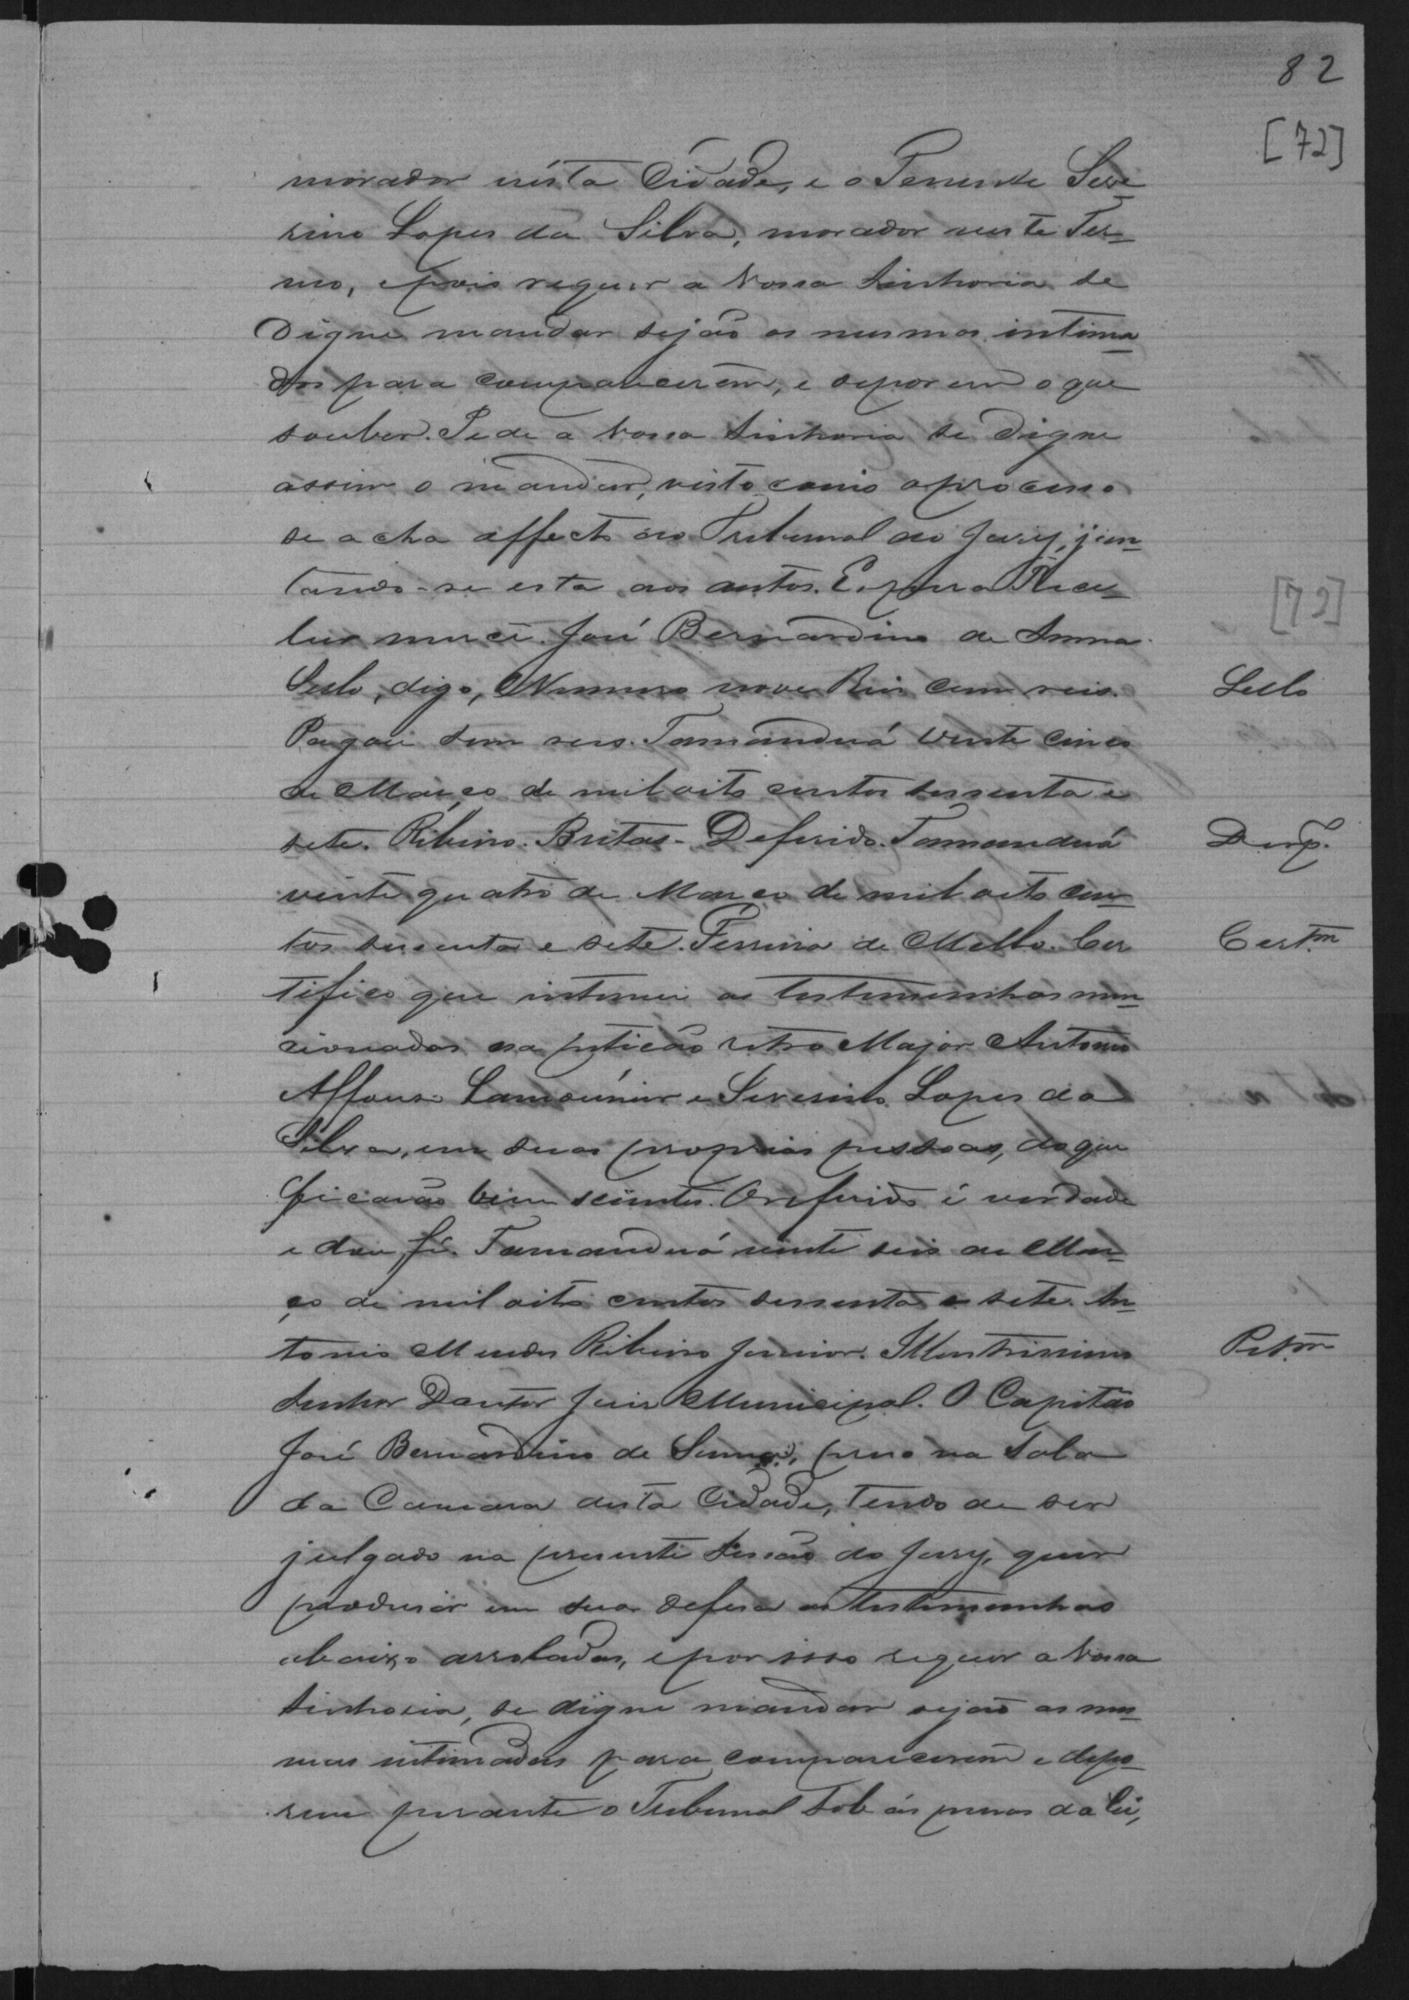 82
[72]
morador nésta Cidade, e o Tenente Seve
rino Lopes da Silva, morador neste Ter-
mo, e pois requer a Vossa Sinhoria se
Digne mandar sejão os mesmos intima
dos para comparecerem, e deporem o que
souber. Pede a Vossa Sinhoria se digne
assim o mandar, visto como o processo
se acha affecto ao Tribunal do Jury, jun-
tando-se esta aos autos. Espera Rece-
ber mercê. José Bernardino de Senna.
Sello, digo, Numero nove Reis cem reis. Sello
Pagou cem reis. Tamanduá vinte cinco
de Março de mil oito centos sessenta e
sete. Ribeiro. Brítas- Deferido. Tamanduá Desp.
vinte quatro de Março de mil oito cen-
tos sessenta e sete. Ferreira de Mello. Cer Certm
tifico que intimei as testemunhas men-
cionadas na petição retro Major Antonio
Affonso Lamounier e Severino Lopes da
Silva, em suas proprias pessoas, do que
ficarão bem scientes. O referido é verdade
e dou fé. Tamanduá vinte seis de Mar-
ço de mil oito centos sessenta e sete. An-
tonio Mendes Ribeiro Junior. Illustrissimo Petm
Senhor Doutor Juis Municipal. O Capitão
José Bernardino de Senna, preso na Sala
da Camara desta Cidade, tendo de ser
julgado na presente Sessão do Jury, quer
produsir em sua defesa as testemunhas
abaixo arroladas, e por isso requer a Vossa
Sinhoria, se digne mandar sejão as mes-
mas intimadas para comparecerem e depo-
rem perante o Tribunal sob ás penas da lei,
[72]